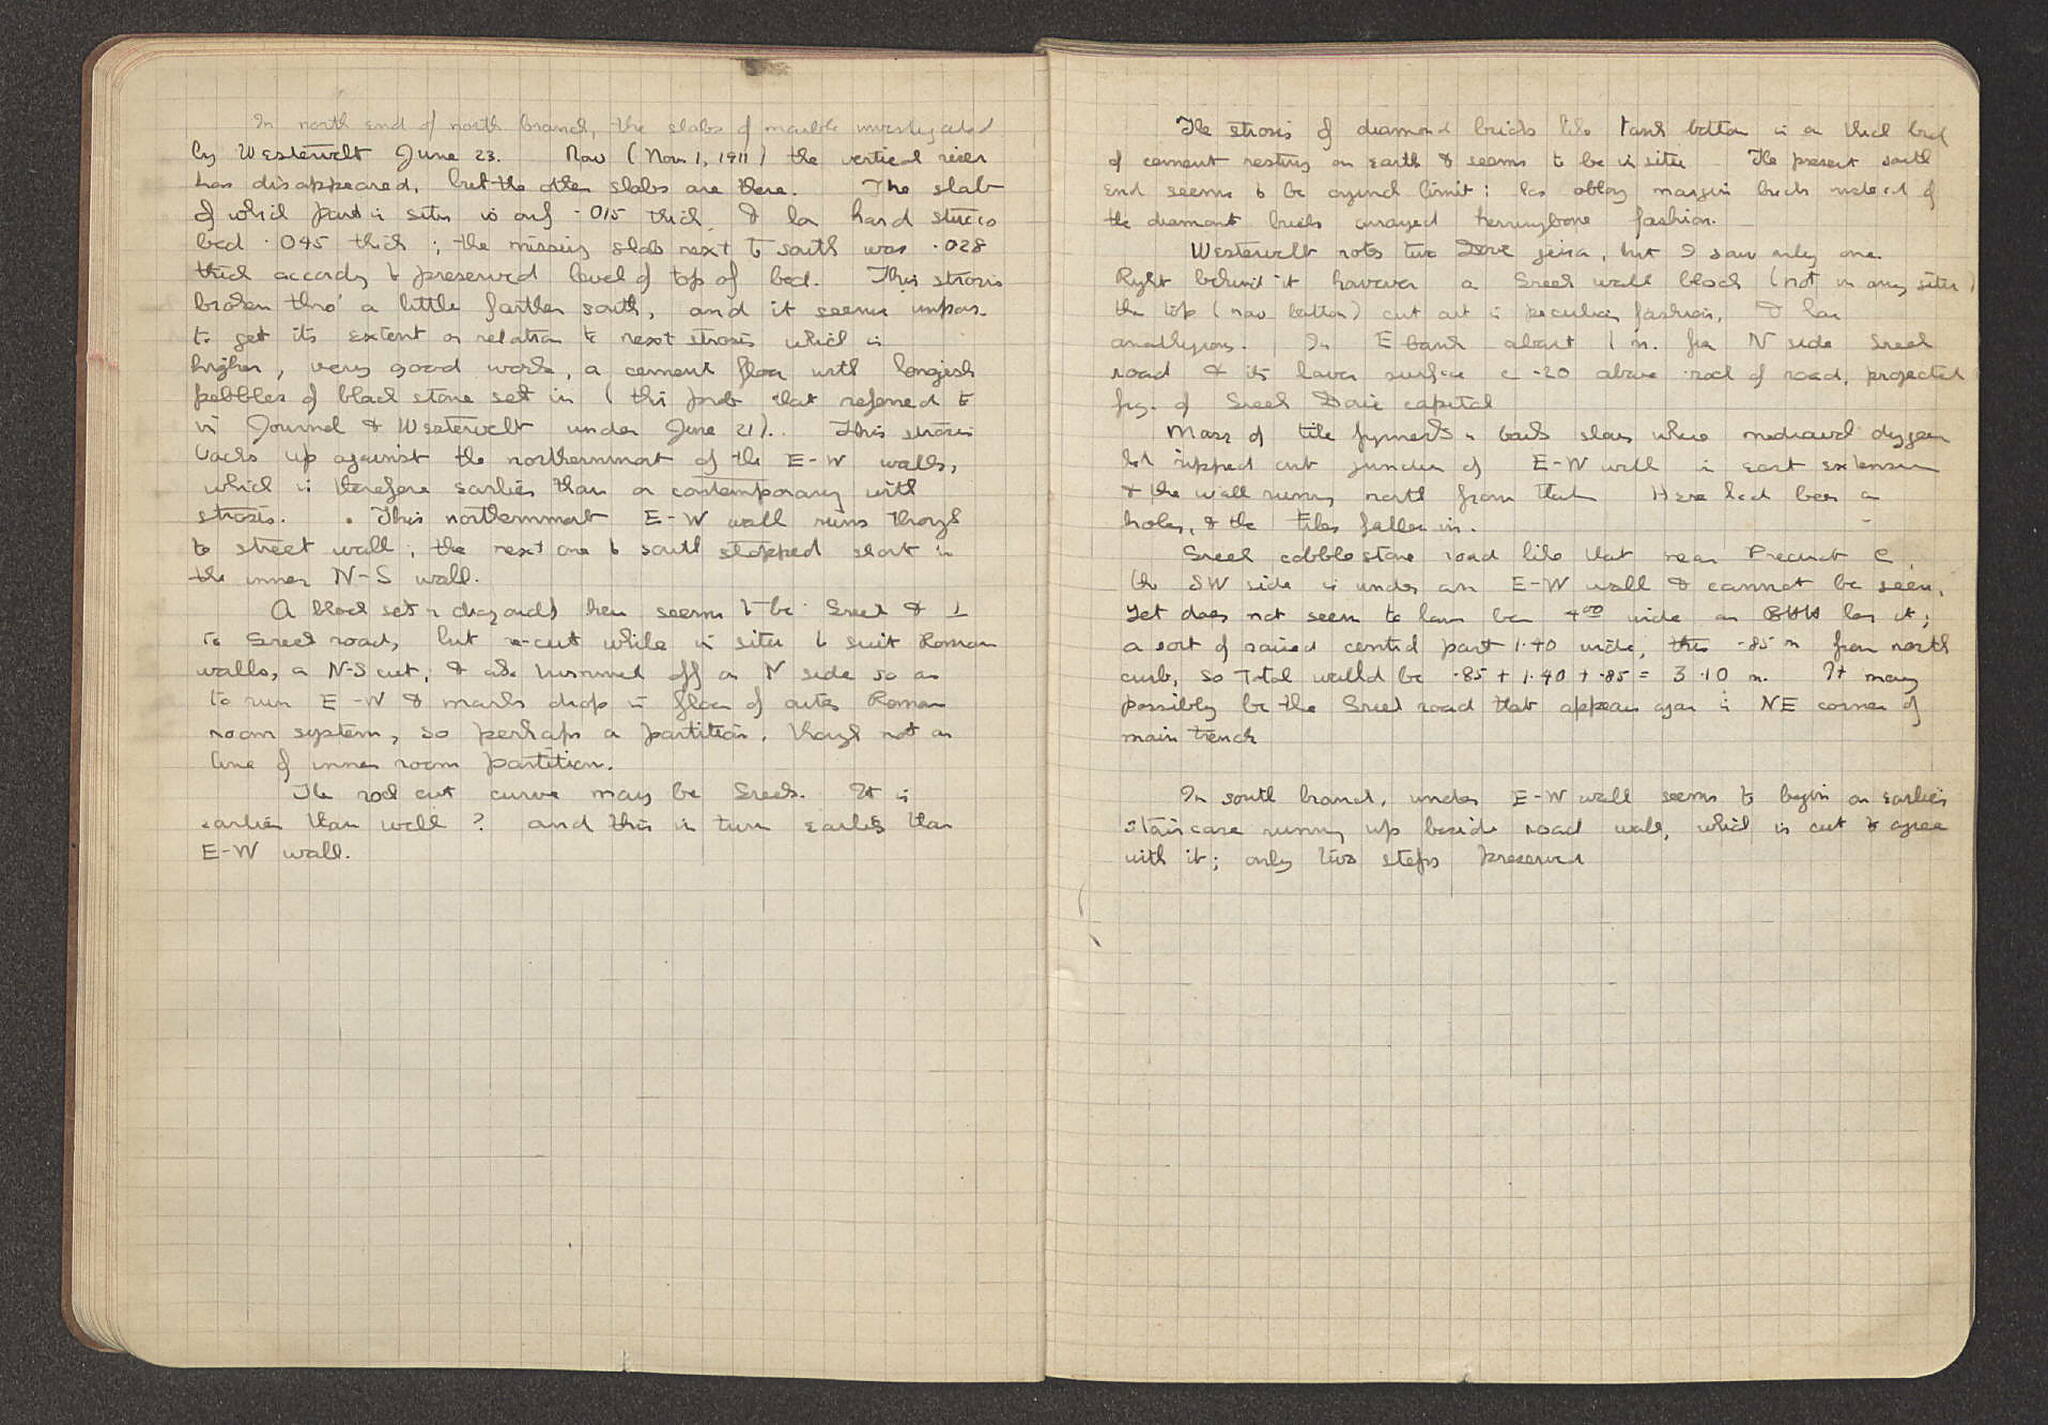 In north end of north branch, the slabs of marble investigated
by Westervelt June 23. Now (Nov. 1, 1911) the vertical riser
has disappeared, but the other slabs are there. The slab
of which part in situ is only .015 thick, & has hard stucco
bed .045 thick; the missing slab next to south was .028
thick according to preserved level of top of bed. This strosis
broken thro' a little farther south, and it seems impos.
to get its extent or relation to next strosis which is
higher, very good work, a cement floor with longish
pebbles of black stone set in (this prob that referred to
in Journal & Westervelt under June 21). This strosis
backs up against the northernmost of the E-W walls,
which is therefore earlier than or contemporary with
strosis. This northernmost E-W wall runs through
to street wall; the next one to south stopped short in
the inner N-S wall.
A block set diagonally here seems to be Greek & ⊥
to Greek road, but re-cut while in situ to suit Roman
walls, a N-S cut, & also trimmed off on N side so as
to run E-W & marks drop in floor of outer Roman
room system, so perhaps a partition, though not on
line of inner room partition.
The rock cut curve may be Greek. It is
earlier than wall? and this in turn earlier than
E-W wall.
The strosis of diamond bricks like tank bottom is on thick bed
of cement resting on earth & seems to be in situ The present south
end seems to be original limit: has oblong margin bricks instead of
the diamond bricks arrayed herringbone fashion.
Westervelt notes two Doric geisa, but I saw only one.
Right behind it however a Greek wall block (not in orig situ)
the top (now bottom) cut out in peculiar fashion, & has
anathyrosis. In E bank about 1 m. from N side Greek
road & its lower surface c .20 above rock of road, projected
frg. of Greek Doric capital
Mass of tile fragments in bank shows where mediaeval diggers
had ripped out junction of E-W wall in east extension
& the wall running north from that Here had been a
hole, & the tiles fallen in.
Greek cobblestone road like that near Precinct C.
the SW side is under an E-W wall & cannot be seen,
Yet does not seem to have been 4.00 wide as BHH has it;
a sort of raised central part 1.40 wide, .85 m from north
curb, so total would be .85 + 1.40 + .85 = 3.10 m. It may
possibly be the Greek road that appears again in NE corner of
main trench
In south branch, under E-W wall seems to begin an earlier
staircase running up beside road wall, which is cut to agree
with it; only two steps preserved